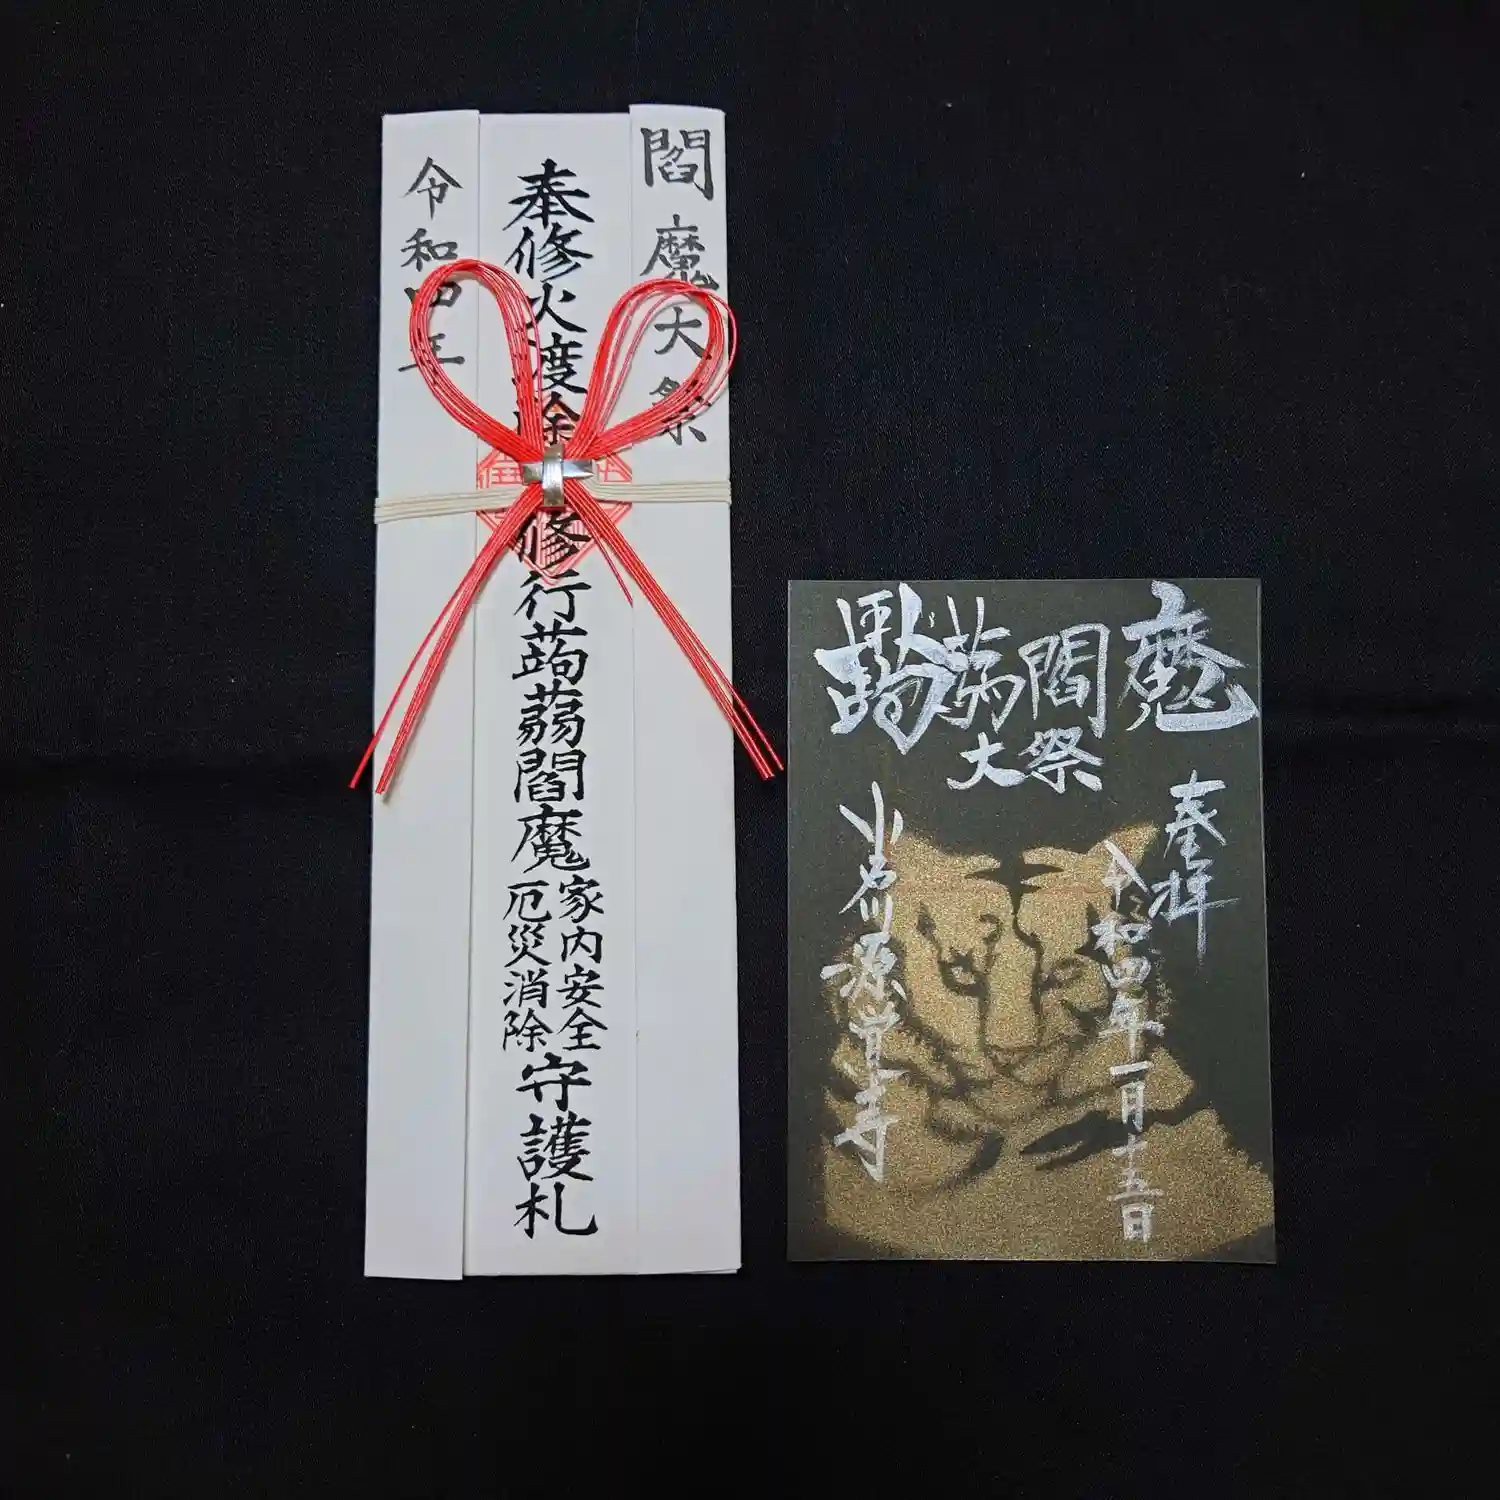 閻魔大祭
奉修火度除
修行蒟蒻閻魔
家内安全
厄災消除
守護札
令和四年
蒟蒻閻魔
大祭
奉拝
令和四年一月十五日
小石川源覚寺